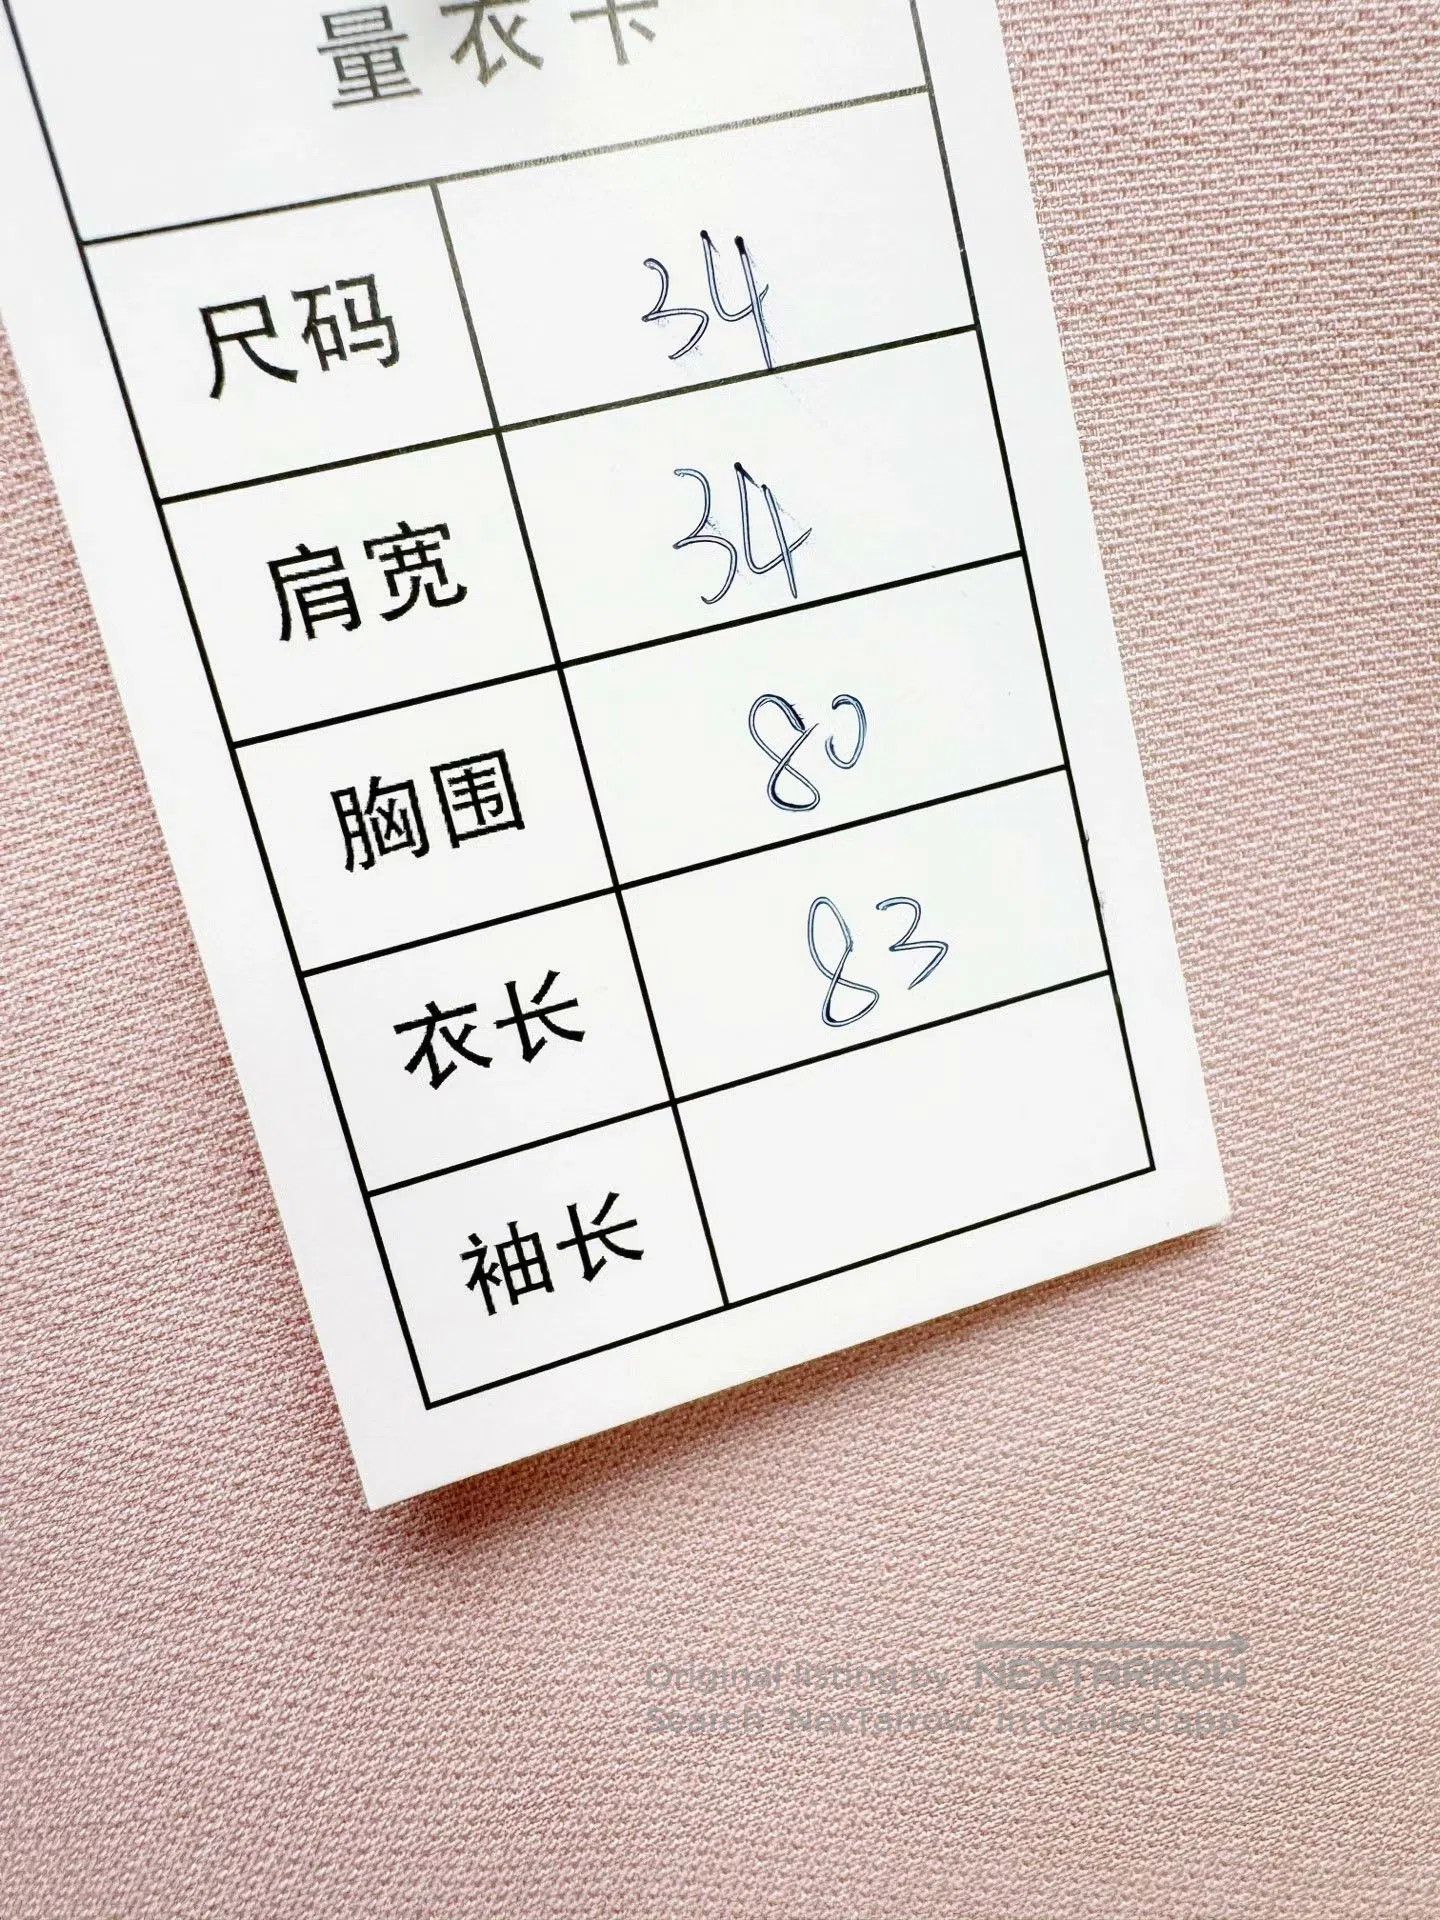 量衣卡
尺码 34
肩宽 34
胸围 80
衣长 83
袖长
Original listing by NEXTARROW
Search "NexTarrow" in Grailed app